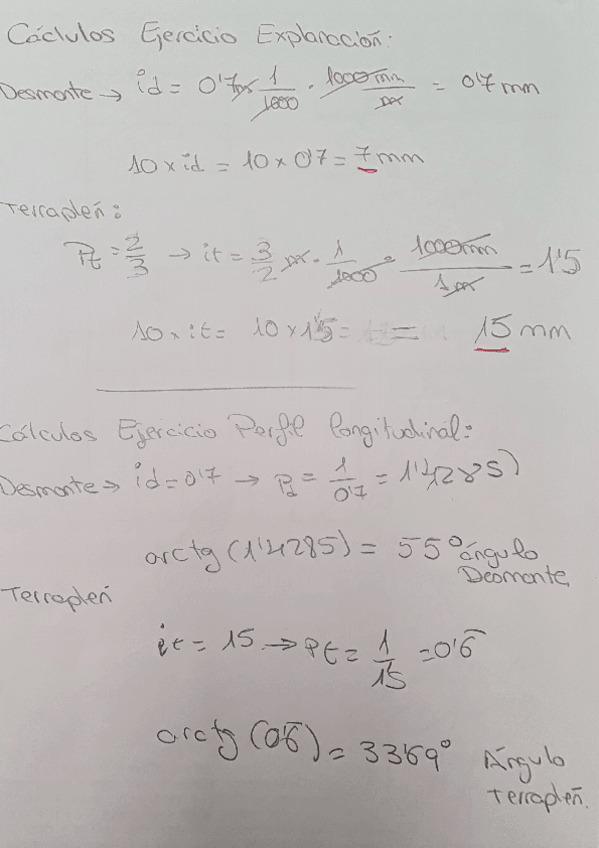 Cáclulos Ejercicio Explanación:
Desmonte → id = 0'7m · 1/1000 · 1000mm/m = 0'7mm
10 x id = 10 x 0'7 = 7mm
Terrapleñ:
Pt = 2/3 → it = 3/2 m · 1/1000 · 1000mm/1m = 1'5
10 x it = 10 x 1'5 = = 15mm
Cálculos Ejercicio Perfil longitudinal:
Desmonte → id = 0'7 → Pd = 1/0'7 = 1'4285)
arctg (1'4285) = 55° ángulo
Desmonte
Terrapleñ
it = 15 → Pt = 1/15 = 0'6̄
arctg (0'6̄) = 33'69° Ángulo
terrapleñ.